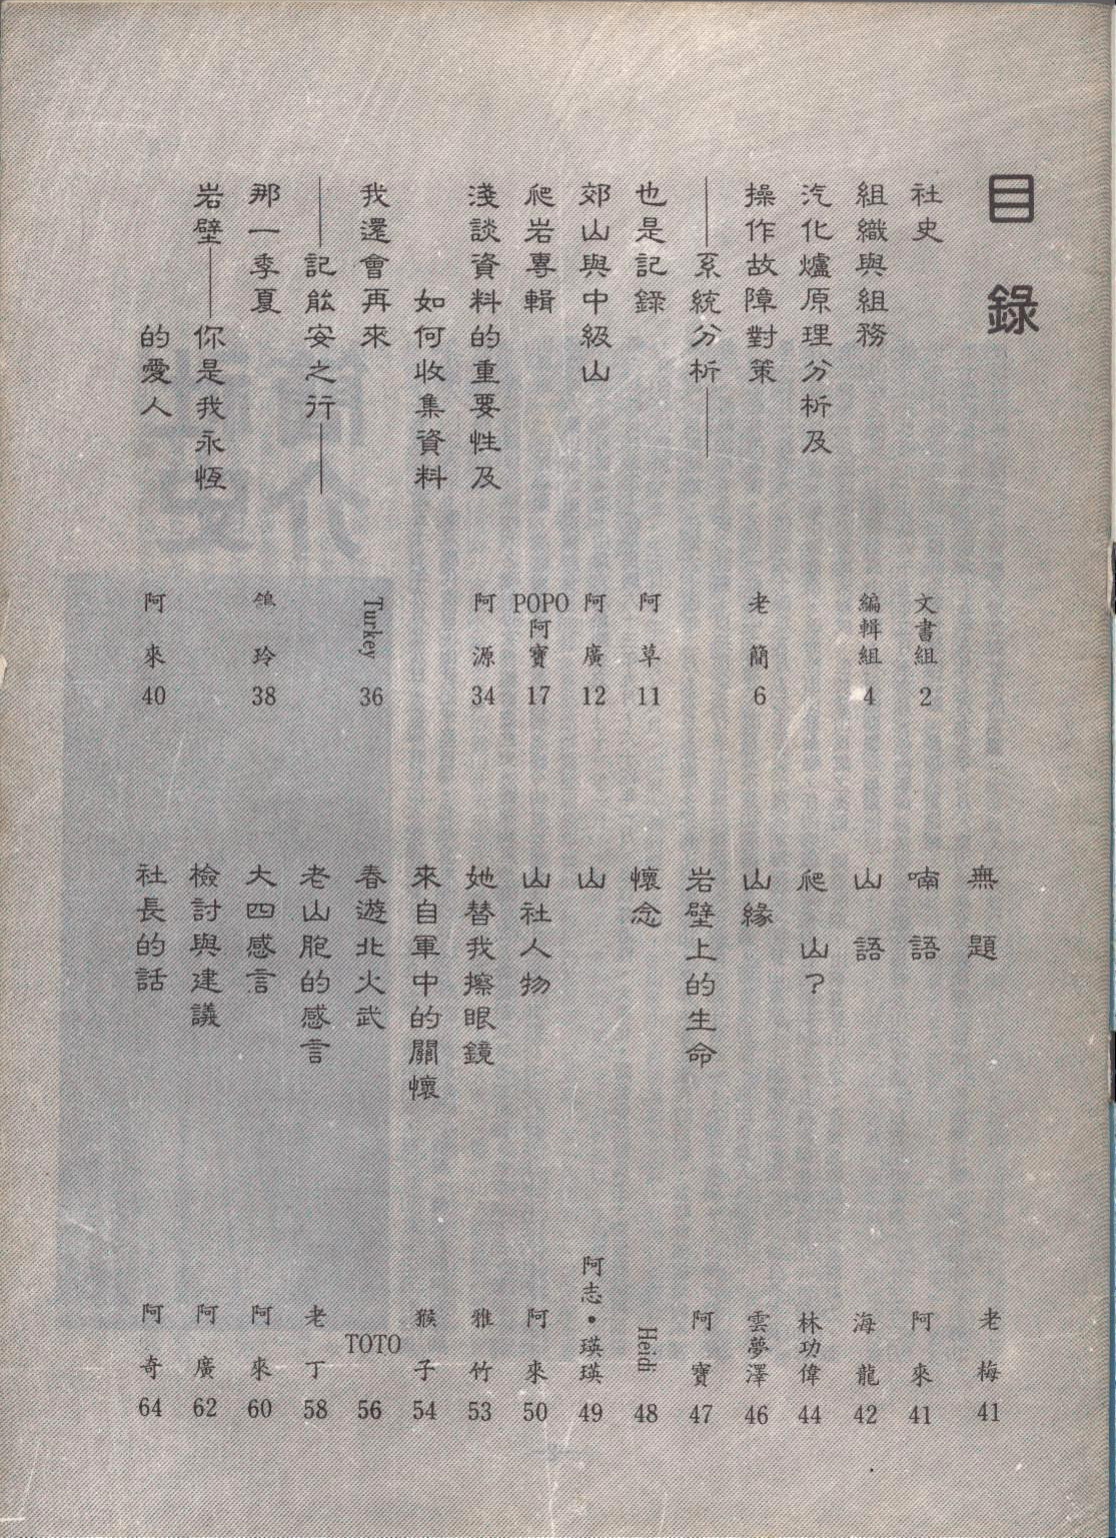 目錄
社史 文書組 2
組織與組務 編輯組 4
汽化爐原理分析及
操作故障對策 老簡 6
——系統分析——
也是記錄 阿草 11
郊山與中級山 阿廣 12
爬岩專輯 POPO 阿寶 17
淺談資料的重要性及 阿源 34
如何收集資料
我還會再來 Turkey 36
——記能安之行——
那一季夏 鴿玲 38
岩壁——你是我永恆
的愛人 阿來 40
無題 老梅 41
喃語 阿來 41
山語 海龍 42
爬山？ 林功偉 44
山緣 雲夢澤 46
岩壁上的生命 阿寶 47
懷念 Heidi 48
山 阿志·瑛瑛 49
山社人物 阿來 50
她替我擦眼鏡 雅竹 53
來自軍中的關懷 猴子 54
春遊北火武 TOTO 56
老山胞的感言 老丁 58
大四感言 阿來 60
檢討與建議 阿廣 62
社長的話 阿奇 64